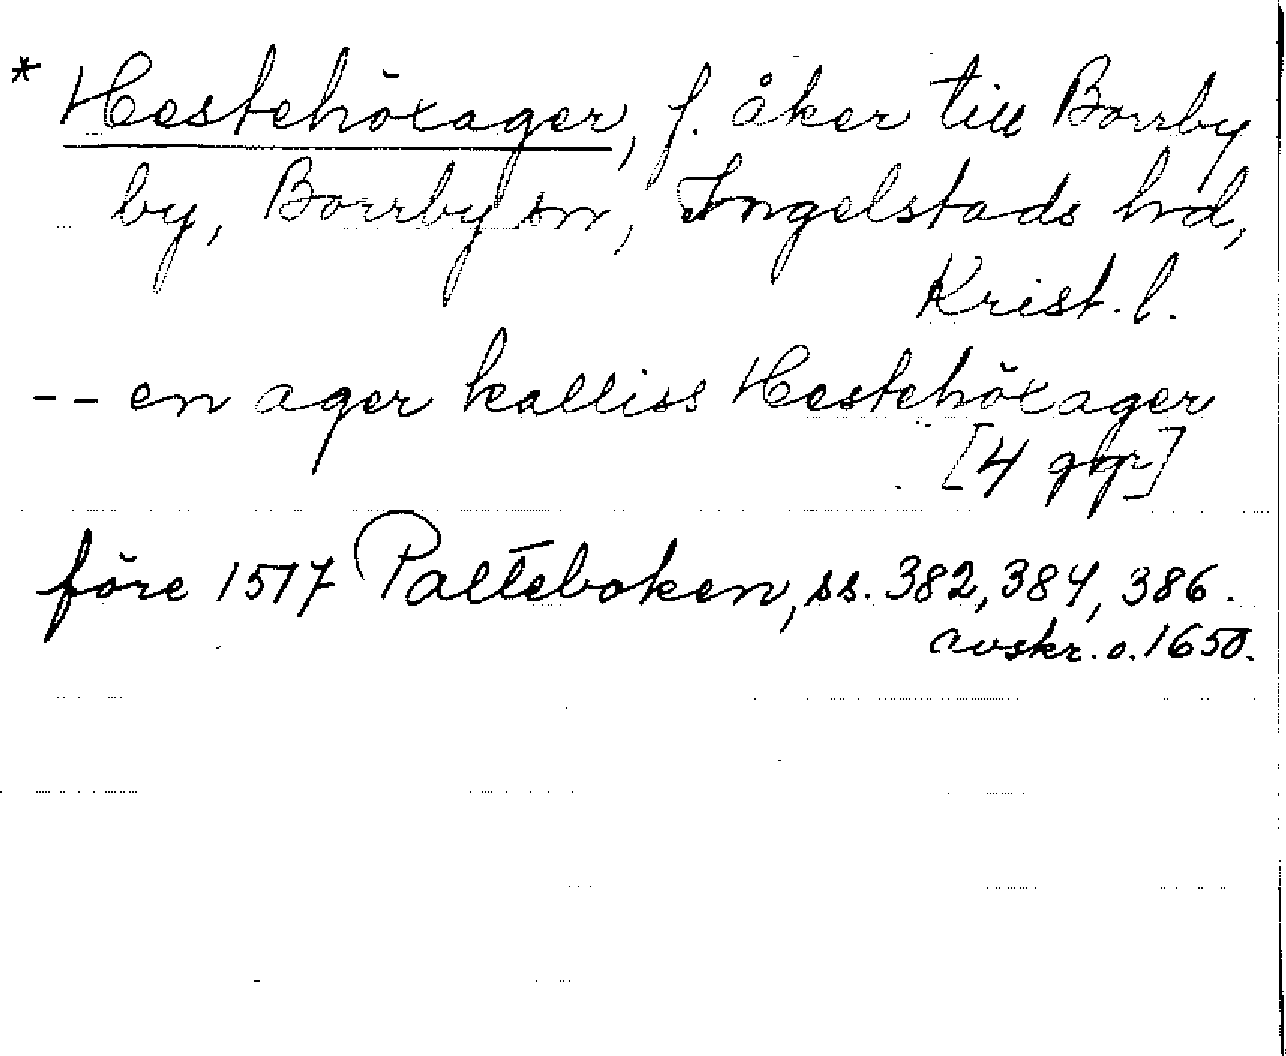 * Hestehöxager, f. åker till Borrby
by, Borrby sn, Ingelstads hd,
Krist. l.
-- en ager kalliss Hestehöxager
[4 ggr]
före 1517 Palteboken, ss. 382, 384, 386.
avskr. o. 1650.